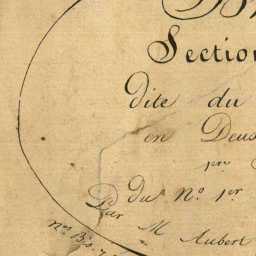 Section
dite du
en Deux
pr
du N.o 1er
Par M Aubert